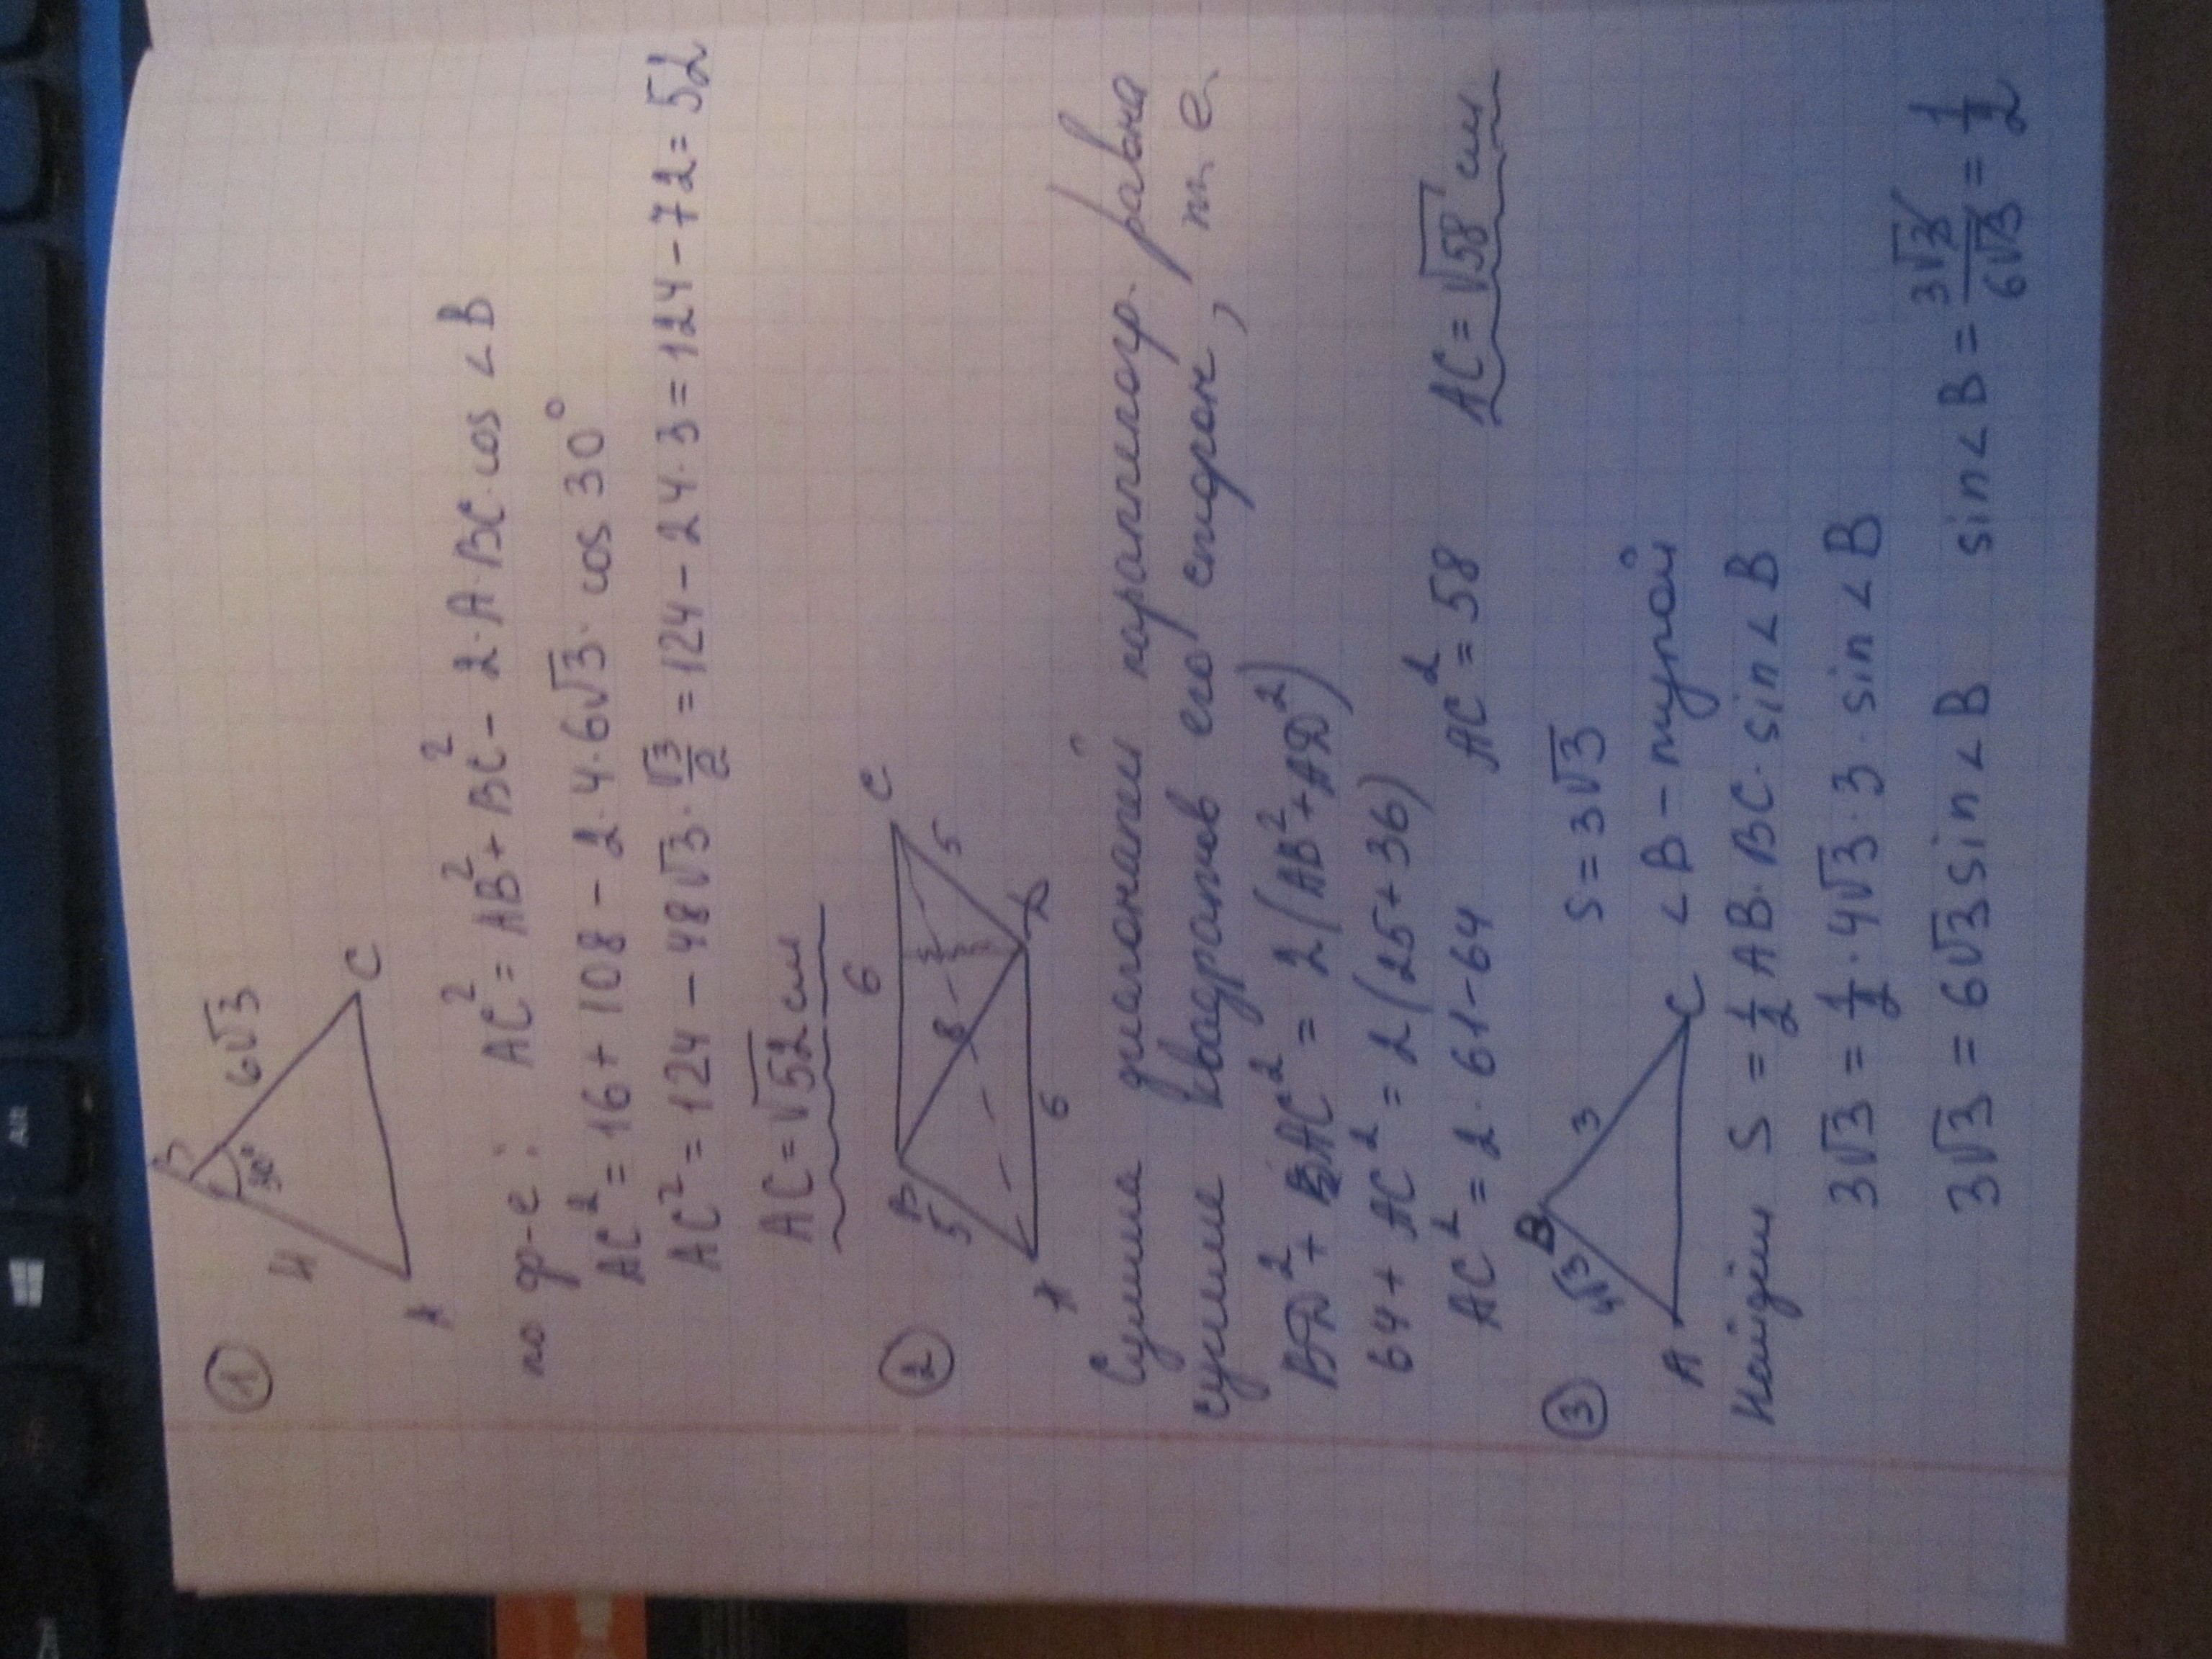 ① B 6√3
4 30° C
A
по ф-е: AC² = AB² + BC² - 2·A·BC·cos ∠B
AC² = 16 + 108 - 2·4·6√3·cos 30°
AC² = 124 - 48√3·√3/2 = 124 - 24·3 = 124 - 72 = 52
AC = √52 см
② B 6 C
5 8 5
A 6 D
Сумма диагоналей параллелогр. равна
сумме квадратов его сторон, т.е.
BD² + AC² = 2(AB² + AD²)
64 + AC² = 2(25 + 36)
AC² = 2·61-64 AC² = 58 AC = √58 см
③ B S = 3√3
4√3 3 ∠B - тупой
A C
Найдём S = 1/2 AB·BC·sin ∠B
3√3 = 1/2·4√3·3·sin ∠B
3√3 = 6√3 sin ∠B sin ∠B = 3√3/6√3 = 1/2